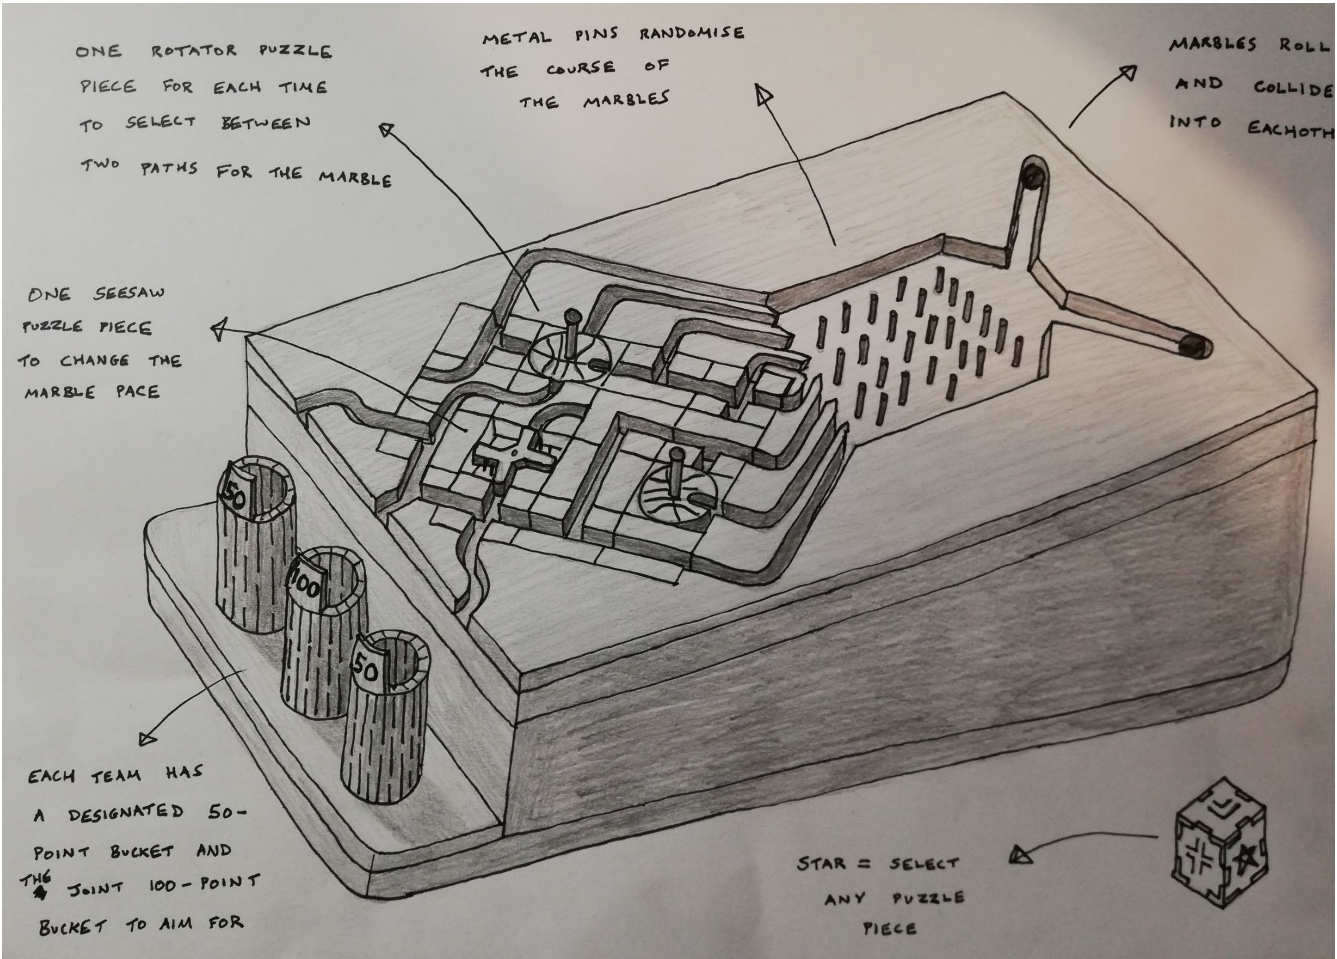 ONE ROTATOR PUZZLE
PIECE FOR EACH TIME
TO SELECT BETWEEN
TWO PATHS FOR THE MARBLE
METAL PINS RANDOMISE
THE COURSE OF
THE MARBLES
MARBLES ROLL
AND COLLIDE
INTO EACHOTH
ONE SEESAW
PUZZLE PIECE
TO CHANGE THE
MARBLE PACE
50
100
50
EACH TEAM HAS
A DESIGNATED 50-
POINT BUCKET AND
THE JOINT 100-POINT
BUCKET TO AIM FOR
STAR = SELECT
ANY PUZZLE
PIECE